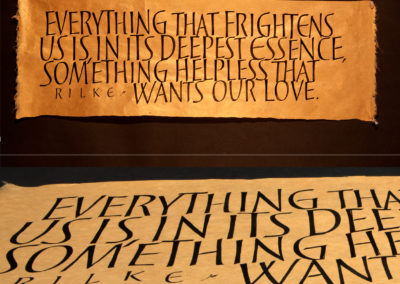 EVERYTHING THAT FRIGHTENS
US IS IN ITS DEEPEST ESSENCE,
SOMETHING HELPLESS THAT
RILKE - WANTS OUR LOVE.
EVERYTHING THA
US IS IN ITS DEE
SOMETHING HE
RILKE - WANT